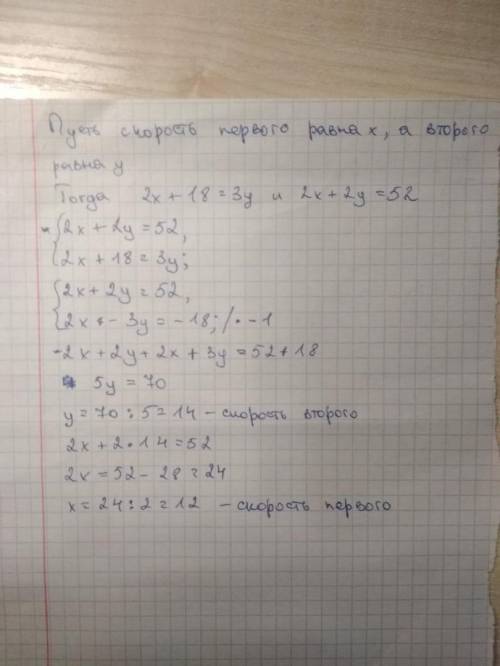 Пусть скорость первого равна x, а второго
равна y
Тогда 2x + 18 = 3y и 2x + 2y = 52
{2x + 2y = 52,
{2x + 18 = 3y;
{2x + 2y = 52,
{2x - 3y = -18; /· -1
-2x + 2y + 2x + 3y = 52 + 18
5y = 70
y = 70 : 5 = 14 - скорость второго
2x + 2 · 14 = 52
2x = 52 - 28 = 24
x = 24 : 2 = 12 - скорость первого